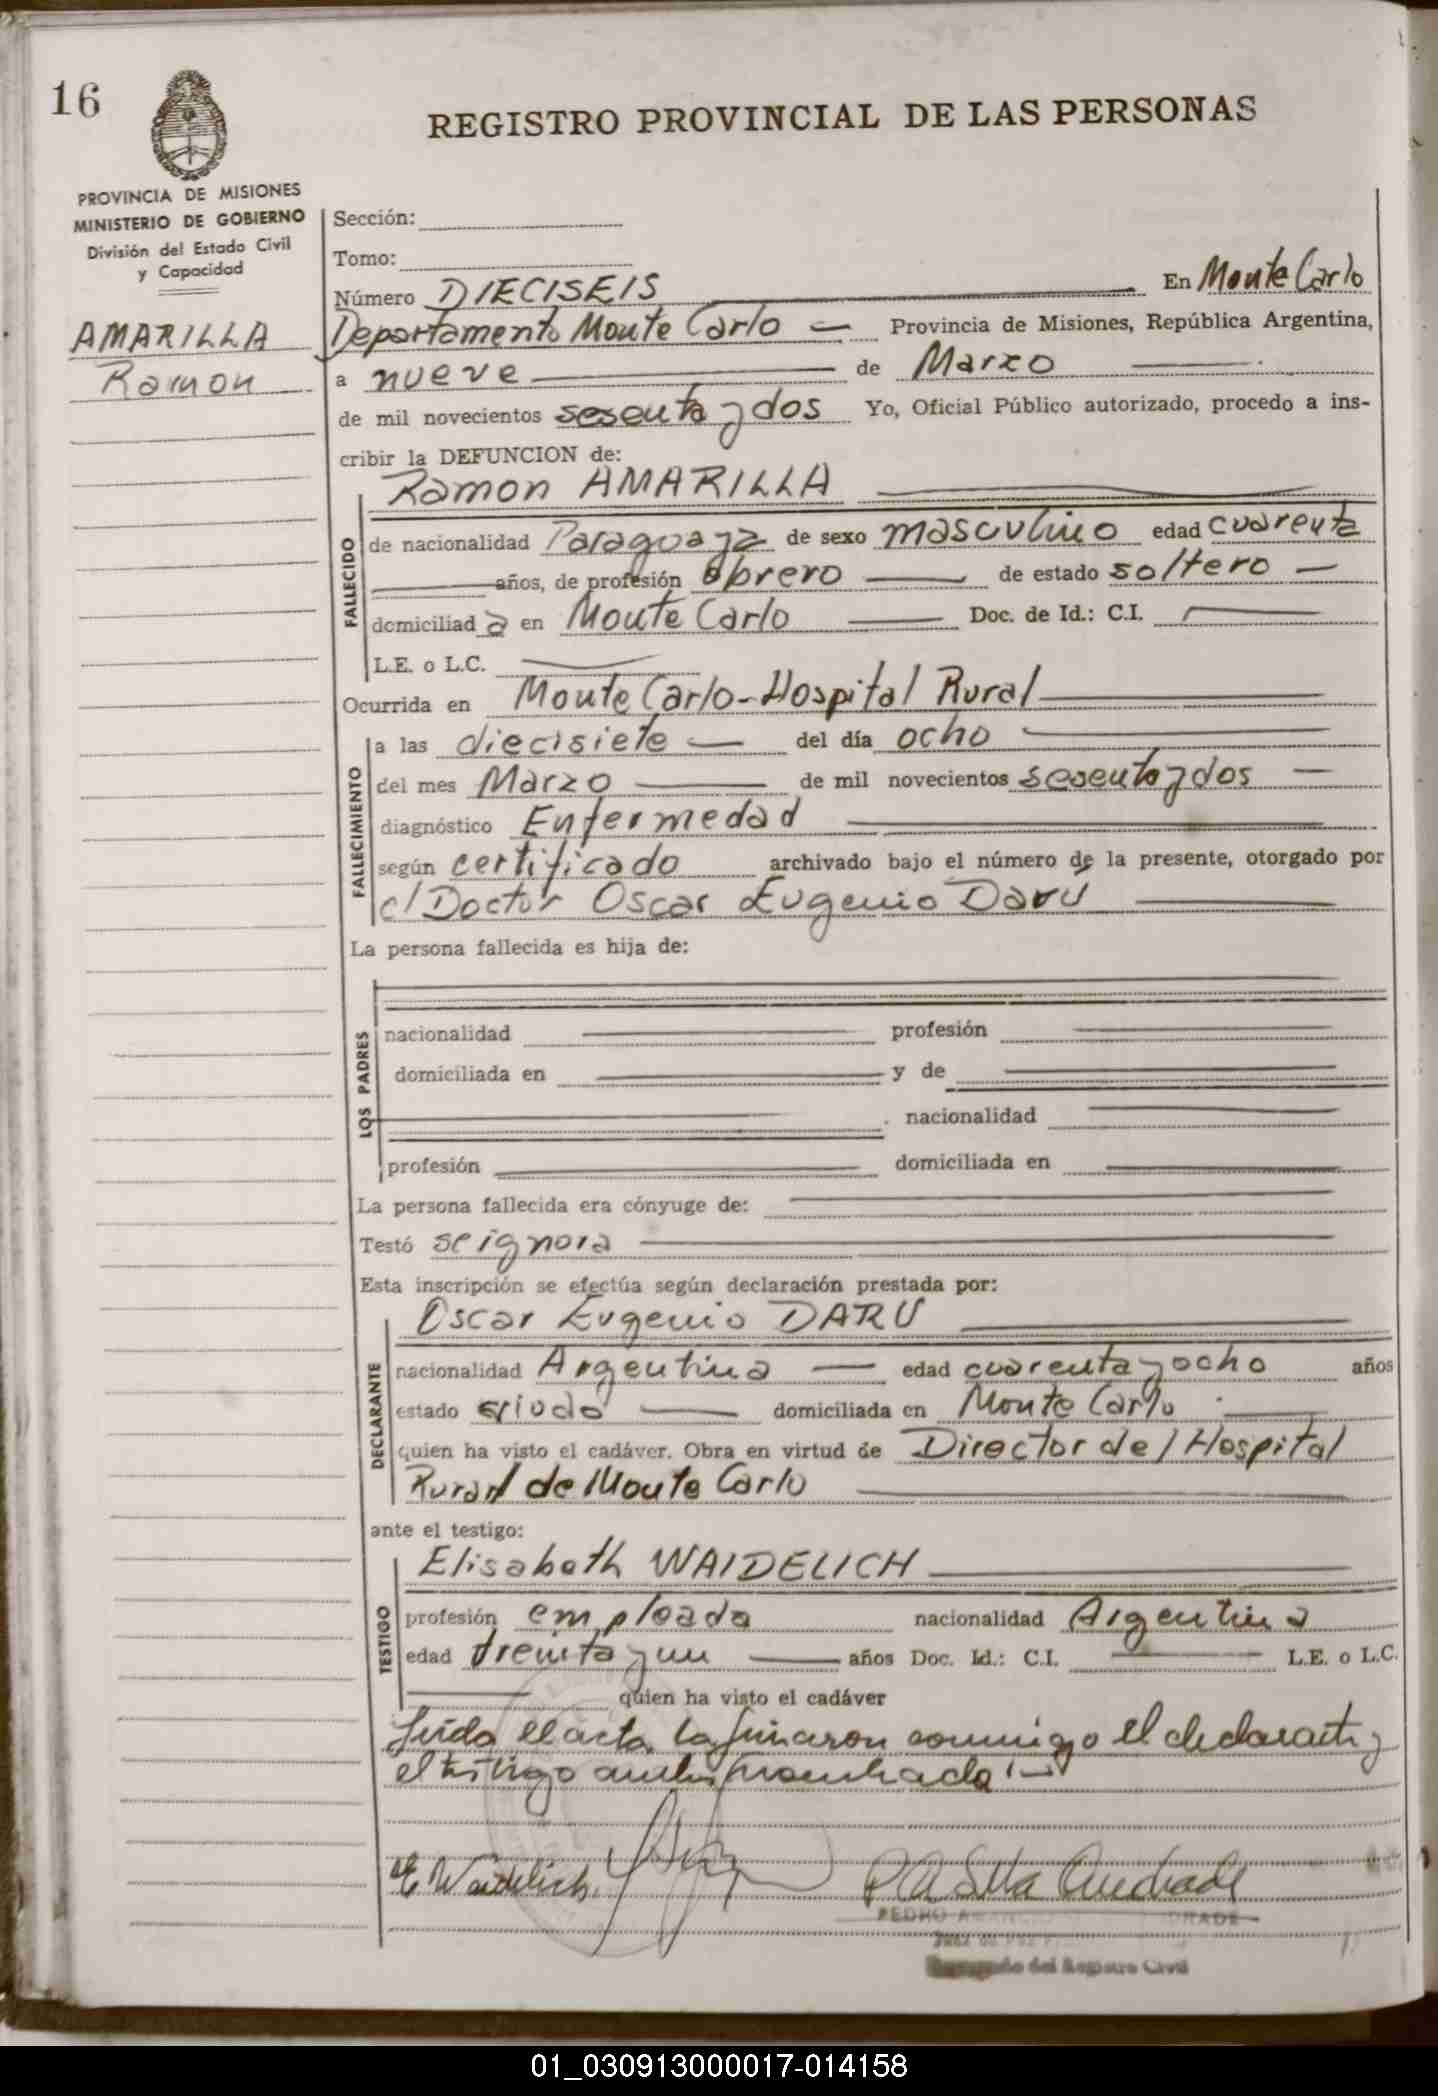 16
REGISTRO PROVINCIAL DE LAS PERSONAS
PROVINCIA DE MISIONES
MINISTERIO DE GOBIERNO
División del Estado Civil
y Capacidad
AMARILLA
Ramon
Sección:
Tomo:
Número DIECISEIS En Monte Carlo
Departamento Monte Carlo Provincia de Misiones, República Argentina,
a nueve de Marzo
de mil novecientos sesenta y dos Yo, Oficial Público autorizado, procedo a ins-
cribir la DEFUNCION de:
Ramon AMARILLA
FALLECIDO
de nacionalidad Paraguaya de sexo masculino edad cuarenta
años, de profesión obrero de estado soltero
domiciliad a en Monte Carlo Doc. de Id.: C.I.
L.E. o L.C.
Ocurrida en Monte Carlo-Hospital Rural
FALLECIMIENTO
a las diecisiete del día ocho
del mes Marzo de mil novecientos sesenta y dos
diagnóstico Enfermedad
según certificado archivado bajo el número de la presente, otorgado por
el Doctor Oscar Eugenio Daru
La persona fallecida es hija de:
LOS PADRES
nacionalidad profesión
domiciliada en y de
nacionalidad
profesión domiciliada en
La persona fallecida era cónyuge de:
Testó se ignora
Esta inscripción se efectúa según declaración prestada por:
Oscar Eugenio DARU
DECLARANTE
nacionalidad Argentina edad cuarenta y ocho años
estado domiciliada en Monte Carlo
quien ha visto el cadáver. Obra en virtud de Director del Hospital
Rural de Monte Carlo
ante el testigo:
Elisabeth WAIDELICH
TESTIGO
profesión empleada nacionalidad Argentina
edad treinta y un años Doc. Id.: C.I. L.E. o L.C.
quien ha visto el cadáver
Leída el acta la firmaron conmigo el declarante y
el testigo
E Waidelich
P A Silva Andrade
PEDRO
Encargado del Registro Civil
01_030913000017-014158